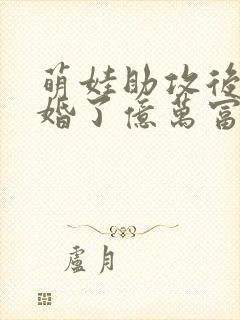 萌娃助攻後
婚了億萬富
盧月